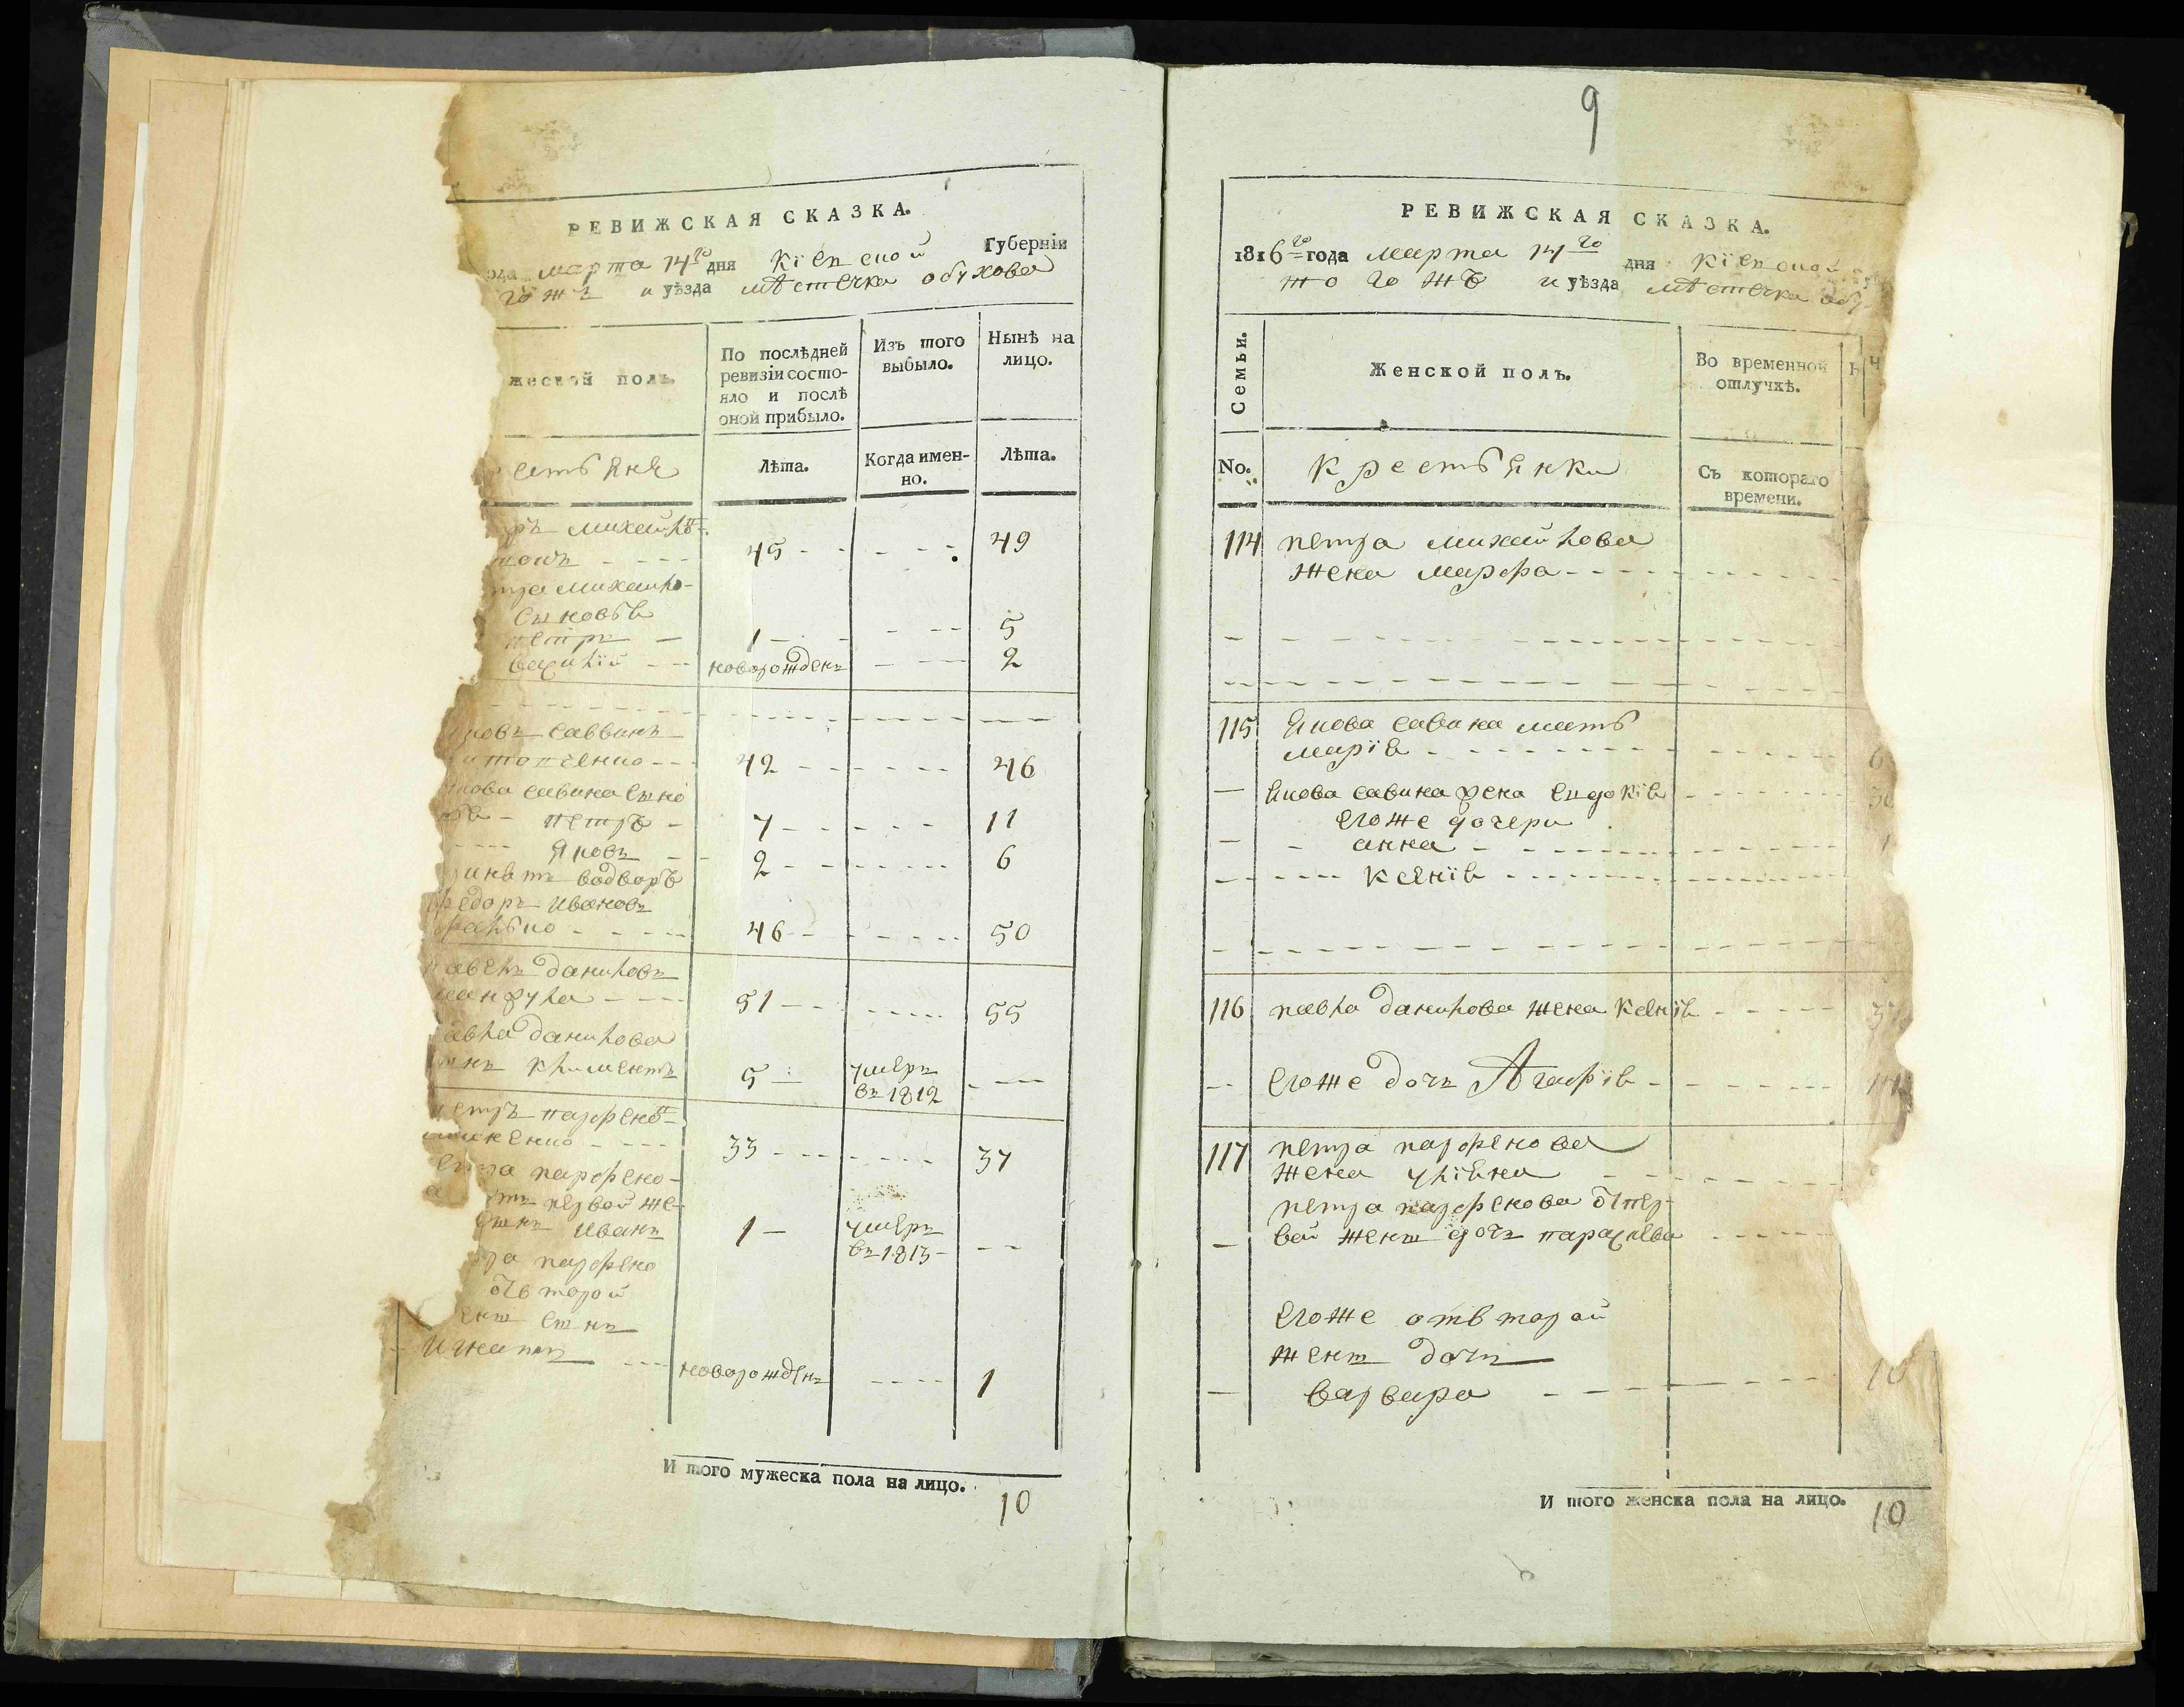 РЕВИЖСКАЯ СКАЗКА.
ода марта 14го дня Кіевской Губерніи
гожъ и уѣзда мѣстечка обухова
жеской полъ.
По послѣдней
ревизіи состо-
яло и послѣ
оной прибыло.
Изъ того
выбыло.
Нынѣ на
лицо.
естьяне
Лѣта.
Когда имен-
но.
Лѣта.
ръ михайлов
45 49
тра михайло-
сыновья
петръ 1 5
василій новорожденъ 2
яковъ саввинъ
42 46
якова савина сыно
вья петръ 7 11
яковъ 2 6
водворѣ
федоръ ивановъ
46 50
павелъ даниловъ
51 55
авла данилова
сынъ климентъ 5 умеръ
въ 1812
петръ парфенов
33 37
етра парфено-
отъ первой же-
сынъ иванъ 1 умеръ
въ 1813
ра парфено
отвторой
енѣ сынъ
игнатъ новорожденъ 1
И того мужеска пола на лицо.
10
9
РЕВИЖСКАЯ СКАЗКА.
1816го года марта 14го дня Кіевской
того жъ и уѣзда мѣстечка обу
Семьи.
Женской полъ.
Во временной
отлучкѣ.
No.
крестьянки
Съ котораго
времени.
114 петра михайлова
жена марфа
115 якова савина мать
марія
якова савина жена евдокія
егоже дочери
анна
ксенія
116 павла данилова жена ксенія
егоже дочь Агафія
117 петра парфенова
жена уліяна
петра парфенова отпер-
вой женѣ дочь параскева
егоже отвторой
женѣ дочь
варвара 10
И того женска пола на лицо. 10